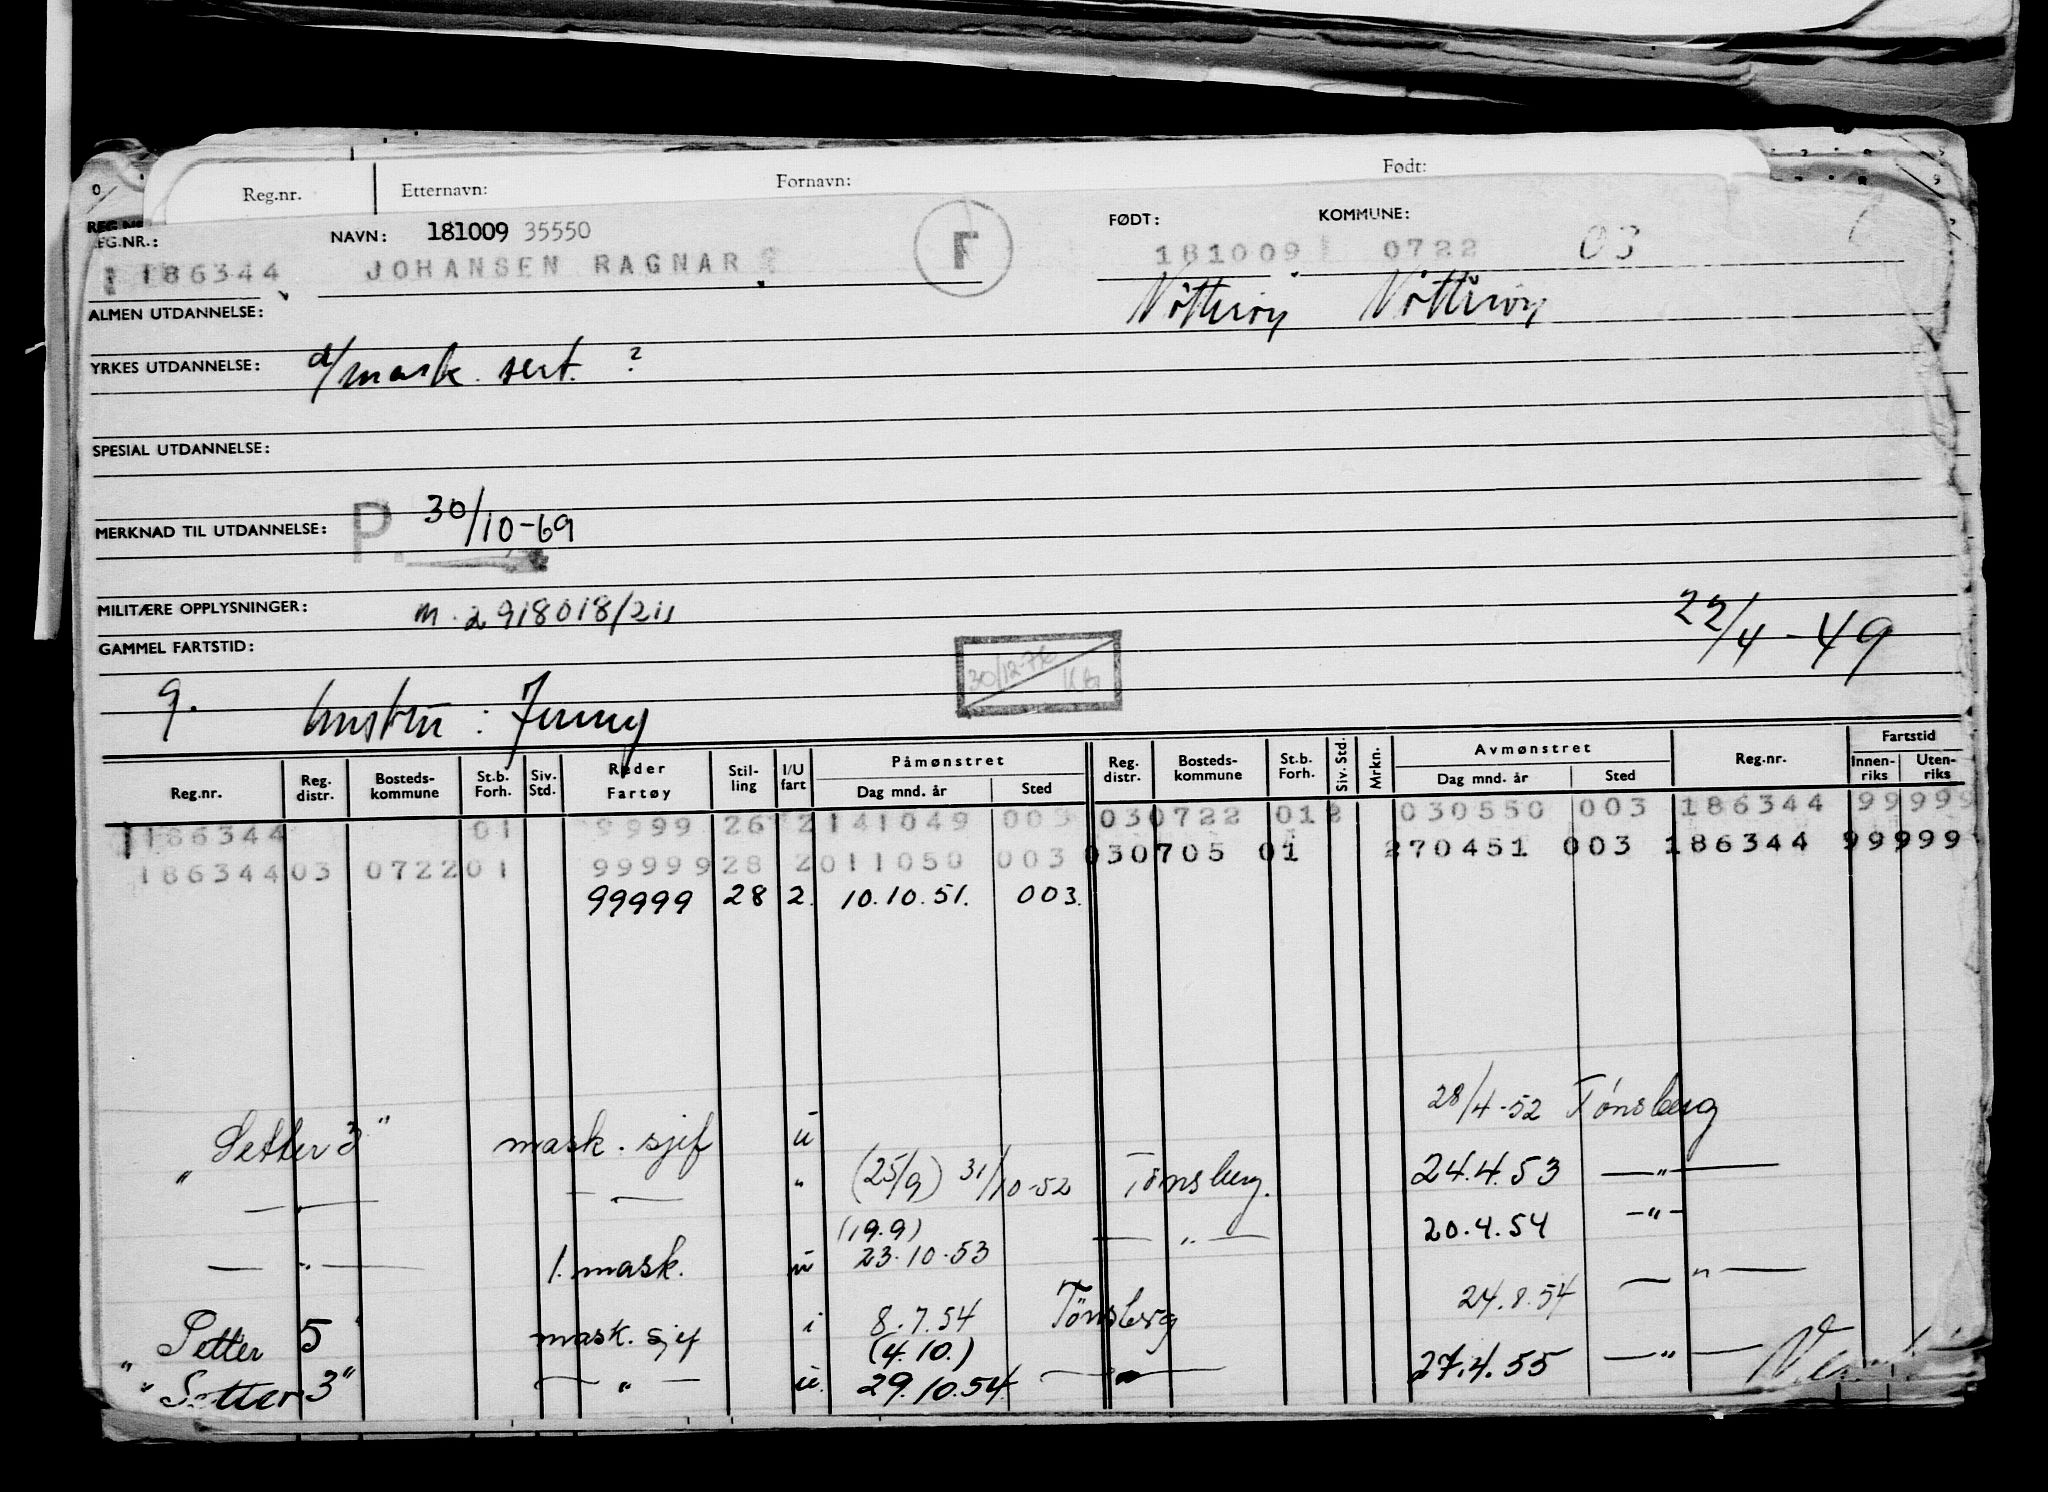 Reg.nr. Etternavn: Fornavn: Født:
REG.NR.: NAVN: 181009 35550 F FØDT: KOMMUNE:
186344 JOHANSEN RAGNAR 181009 0722 03
ALMEN UTDANNELSE: Nötteröy Nötteröy
YRKES UTDANNELSE: d/mask. sert. ?
SPESIAL UTDANNELSE:
MERKNAD TIL UTDANNELSE: P. 30/10-69
MILITÆRE OPPLYSNINGER: m. 2918018/211 22/4-49
GAMMEL FARTSTID: 30/12-76
g. hustru: Jenny
Påmønstret Avmønstret Fartstid
Reg.nr. Reg. distr. Bosteds- kommune St.b. Forh. Siv. Std. Reder Fartøy Stil- ling I/U fart Dag mnd. år Sted Reg. distr. Bosteds- kommune St.b. Forh. Siv. Std. Mrkn. Dag mnd. år Sted Reg.nr. Innen- riks Uten- riks
186344 01 9999 26 2 141049 003 030722 012 030550 003 186344 99999
186344 03 0722 01 99999 28 2 011050 003 030705 01 270451 003 186344 99999
99999 28 2. 10.10.51. 003.
28/4-52 Tønsberg
"Setter 3" mask. sjef u
— " — — " — " (25/9) 31/10-52 Tønsberg. 24.4.53 — " —
(19.9)
— " — 1. mask. u 23.10.53 — " — 20.4.54 — " —
"Setter 5" mask. sjef i 8.7.54 Tönsberg 24.8.54 — " —
(4.10.)
"Setter 3" — " — u. 29.10.54. — " — 27.4.55 — " —